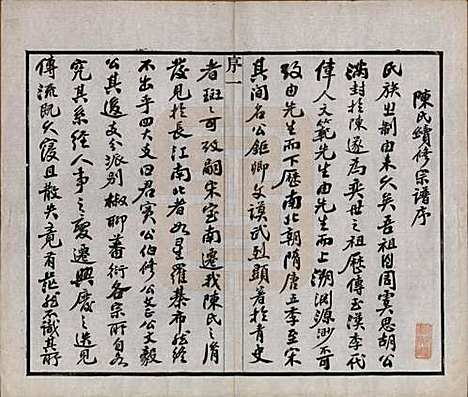 陳氏續修宗譜序
民族出制由来久矣吾祖自周虞思胡公
滿封於陳遂為奕世之祖歷傳至漢季代
偉人文範先生由先生而上溯淵源渺不可
攷由先生而下歷南北朝隋唐五季至宋
其间名公鉅卿文謨武烈顯著於青史
序一
者斑斑可攷嗣宋室南遷我陳氏之滑
發見於長江南北者如星羅棊布然終
不出乎四大支曰君實公伯修公文正公文毅
公其邊支分派别椒聊蕃衍各宗所自各
究其系經人事之變遷興廢之迭見
傳流既久寖且散失竟有茫然不識其所